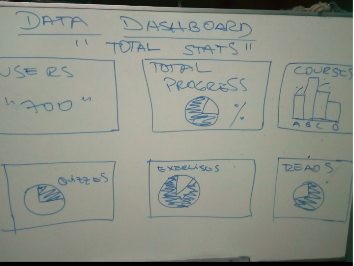 DATA DASHBOARD
"TOTAL STATS"
USERS
"700"
TOTAL
PROGRESS
%
COURSES
A B C D
QUIZZES
EXERCISES
READS